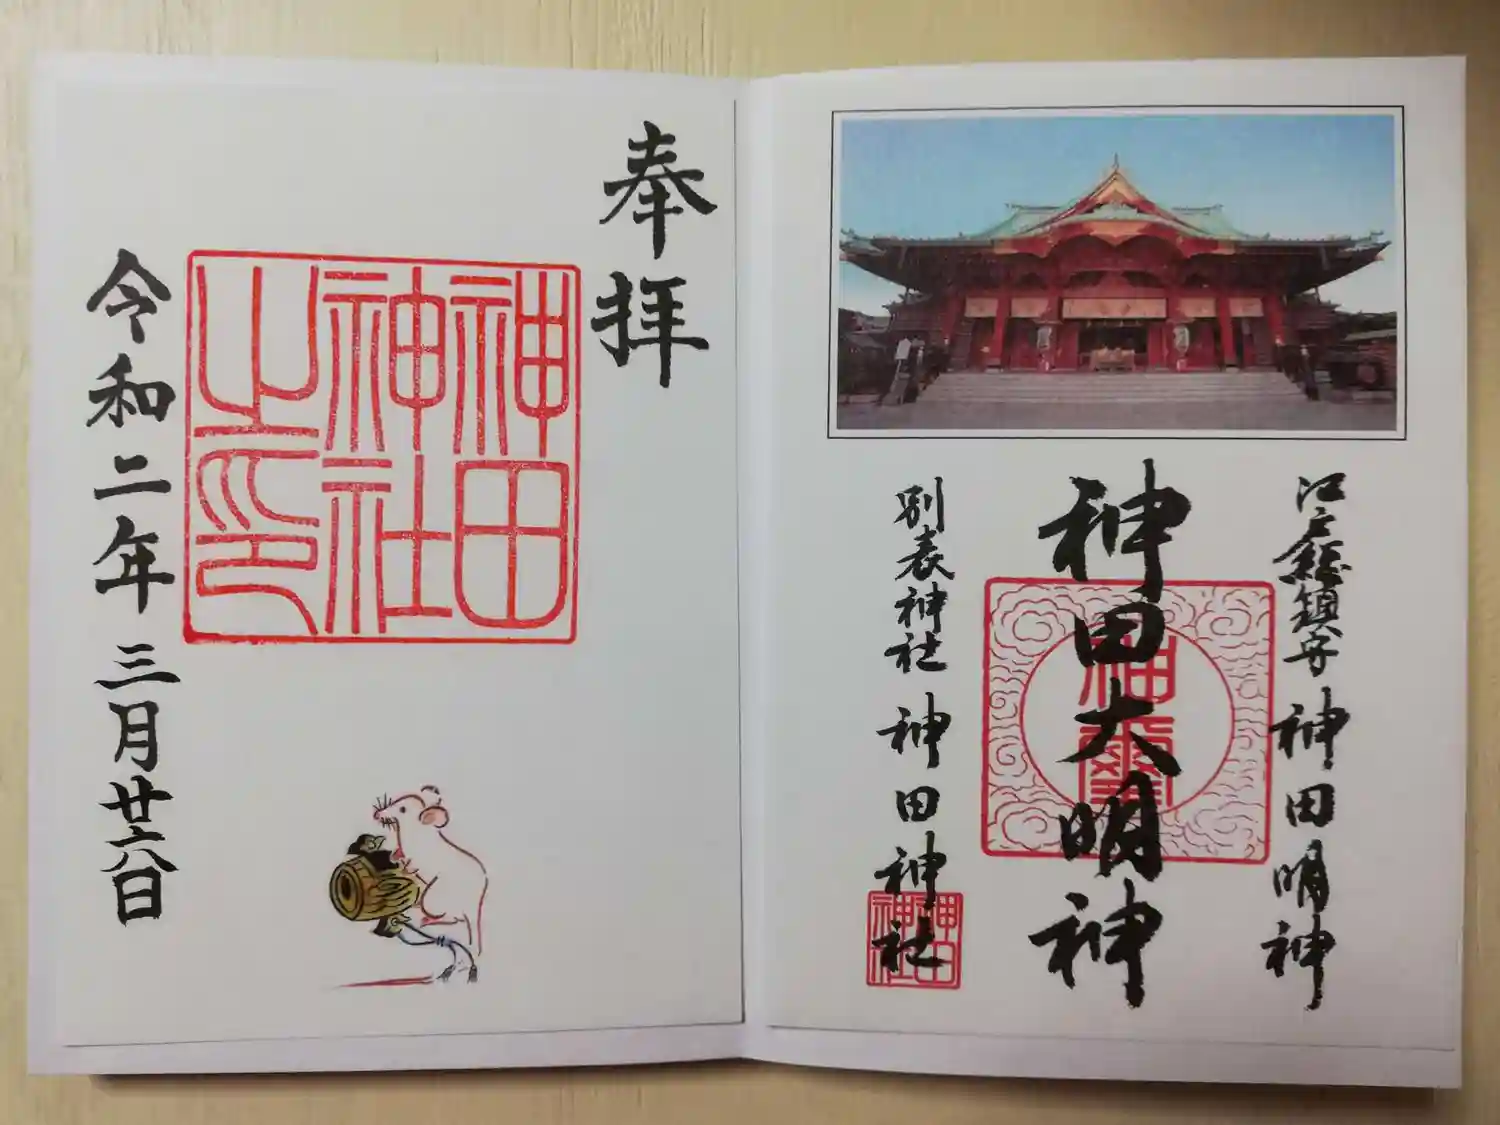 江戸総鎮守 神田明神
神田大明神
神璽
別表神社 神田神社
神田神社
奉拝
神田神社之印
令和二年三月廿六日